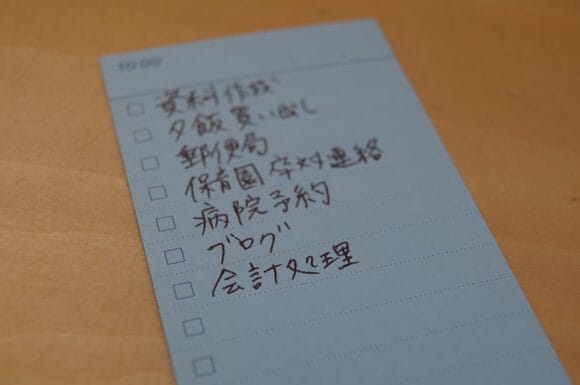 TO DO
資料作成
夕飯買い出し
郵便局
保育園 卒対連絡
病院予約
ブログ
会計処理